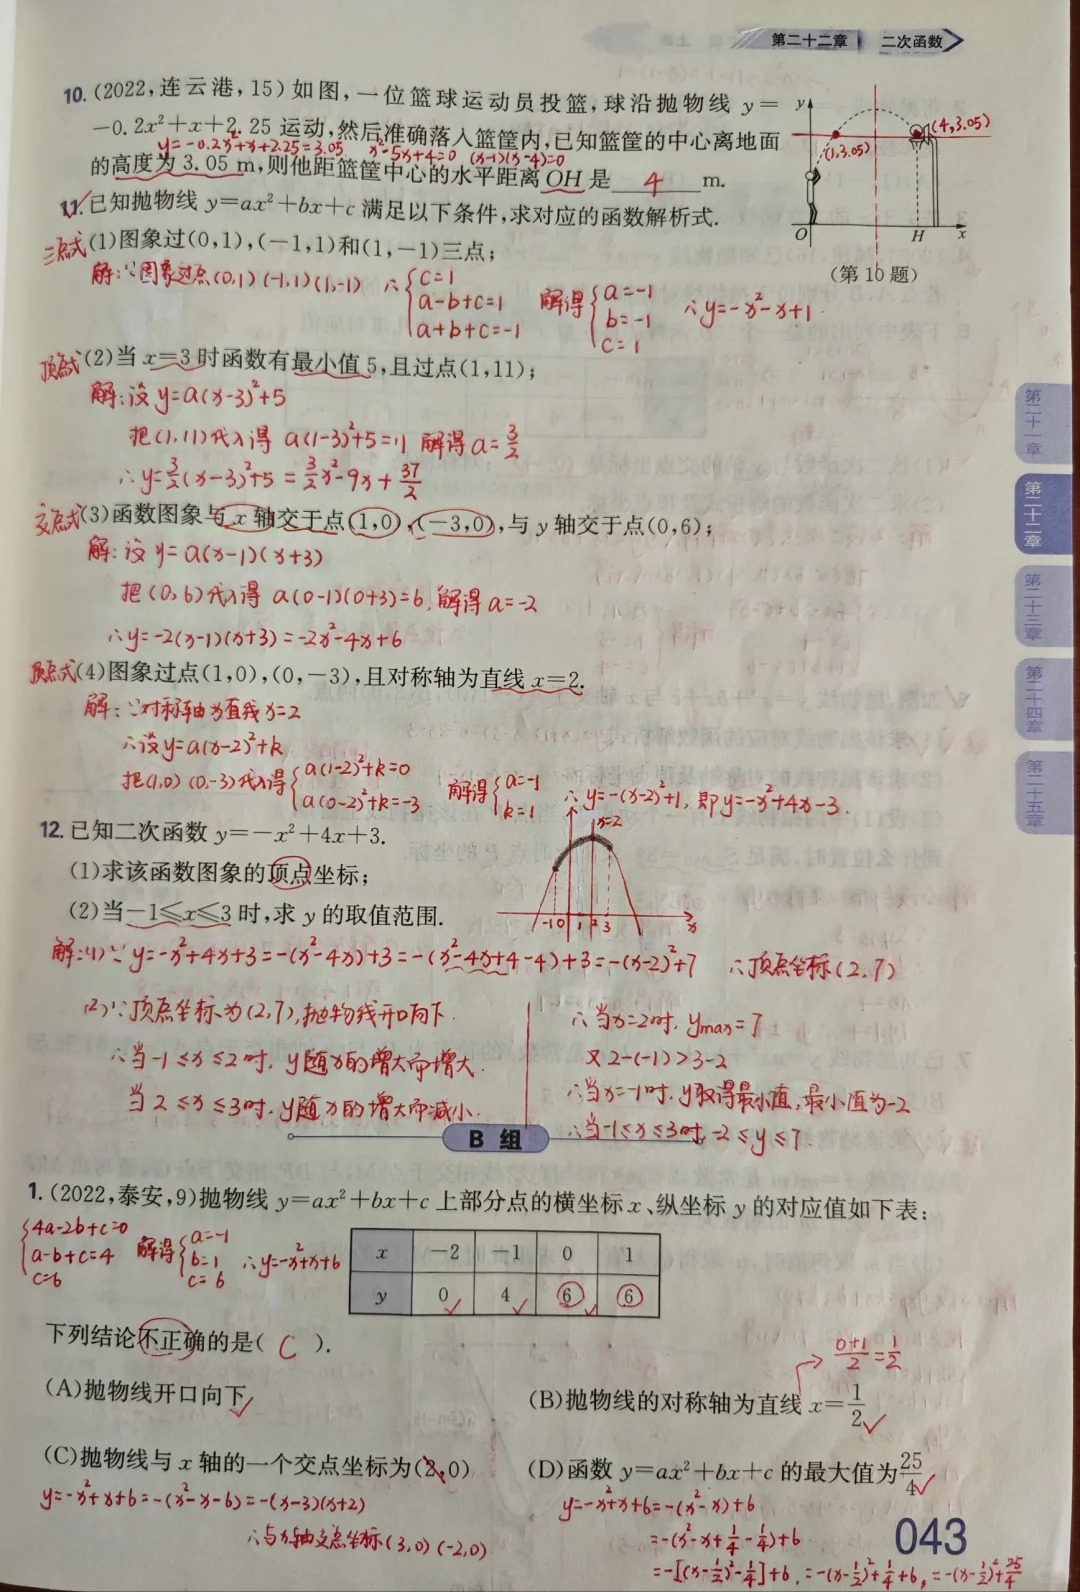 第二十二章 二次函数
10. (2022,连云港,15)如图,一位篮球运动员投篮,球沿抛物线 y=
-0.2x²+x+2.25 运动,然后准确落入篮筐内,已知篮筐的中心离地面
y=-0.2x²+x+2.25=3.05 x²-5x+4=0 (x-1)(x-4)=0
的高度为 3.05 m,则他距篮筐中心的水平距离 OH 是 4 m.
y
(4,3.05)
(1,3.05)
O H x
(第 10 题)
11. 已知抛物线 y=ax²+bx+c 满足以下条件,求对应的函数解析式.
三点式 (1)图象过(0,1),(-1,1)和(1,-1)三点;
解:∵图象过点(0,1)(-1,1)(1,-1) ∴{c=1 a-b+c=1 a+b+c=-1 解得{a=-1 b=-1 c=1 ∴y=-x²-x+1.
顶点式 (2)当 x=3 时函数有最小值 5,且过点(1,11);
解:设 y=a(x-3)²+5
把(1,11)代入得 a(1-3)²+5=11 解得 a=3/2
∴y=3/2(x-3)²+5=3/2x²-9x+37/2
交点式 (3)函数图象与 x 轴交于点(1,0),(-3,0),与 y 轴交于点(0,6);
解:设 y=a(x-1)(x+3)
把(0,6)代入得 a(0-1)(0+3)=6,解得 a=-2
∴y=-2(x-1)(x+3)=-2x²-4x+6
顶点式 (4)图象过点(1,0),(0,-3),且对称轴为直线 x=2.
解:∵对称轴为直线 x=2
∴设 y=a(x-2)²+k
把(1,0)(0,-3)代入得{a(1-2)²+k=0 a(0-2)²+k=-3 解得{a=-1 k=1 ∴y=-(x-2)²+1,即y=-x²+4x-3.
12. 已知二次函数 y=-x²+4x+3.
(1)求该函数图象的顶点坐标;
(2)当-1≤x≤3 时,求 y 的取值范围.
x=2
-1 0 1 2 3 x
解:(1)∵y=-x²+4x+3=-(x²-4x)+3=-(x²-4x+4-4)+3=-(x-2)²+7 ∴顶点坐标(2,7)
(2)∵顶点坐标为(2,7),抛物线开口向下.
∴当-1≤x≤2时,y随x的增大而增大.
当2≤x≤3时,y随x的增大而减小.
∴当x=2时,ymax=7
又2-(-1)>3-2
∴当x=-1时,y取得最小值,最小值为-2
∴当-1≤x≤3时,-2≤y≤7
B 组
1. (2022,泰安,9)抛物线 y=ax²+bx+c 上部分点的横坐标 x、纵坐标 y 的对应值如下表:
{4a-2b+c=0 a-b+c=4 c=6 解得{a=-1 b=1 c=6 ∴y=-x²+x+6
x -2 -1 0 1
y 0 4 6 6
下列结论不正确的是( C ).
(0+1)/2=1/2
(A)抛物线开口向下 (B)抛物线的对称轴为直线 x=1/2
(C)抛物线与 x 轴的一个交点坐标为(2,0) (D)函数 y=ax²+bx+c 的最大值为25/4
y=-x²+x+6=-(x²-x-6)=-(x-3)(x+2)
∴与x轴交点坐标(3,0)(-2,0)
y=-x²+x+6=-(x²-x)+6
=-(x²-x+1/4-1/4)+6
=-[(x-1/2)²-1/4]+6,=-(x-1/2)²+1/4+6,=-(x-1/2)²+25/4
043
第二十一章
第二十二章
第二十三章
第二十四章
第二十五章